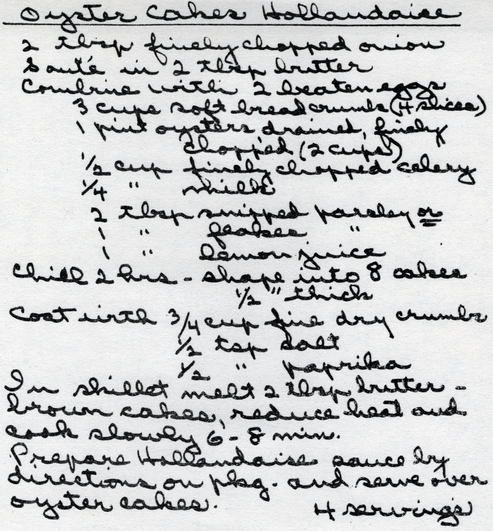 Oyster Cakes Hollandaise
2 tbsp finely chopped onion
Sauté in 2 tbsp butter
Combine with 2 beaten eggs
3 cups soft breadcrumbs (4 slices)
1 pint oysters drained, finely
chopped (2 cups)
1/2 cup finely chopped celery
1/4 " milk
2 tbsp snipped parsley or
1 " flakes "
1 " lemon juice
Chill 2 hrs - shape into 8 cakes
1/2" thick
Coat with 3/4 cup fine dry crumbs
1/2 tsp salt
1/2 " paprika
In skillet melt 2 tbsp butter -
brown cakes, reduce heat and
cook slowly 6-8 min.
Prepare Hollandaise sauce by
directions on pkg. and serve over
oyster cakes. 4 servings